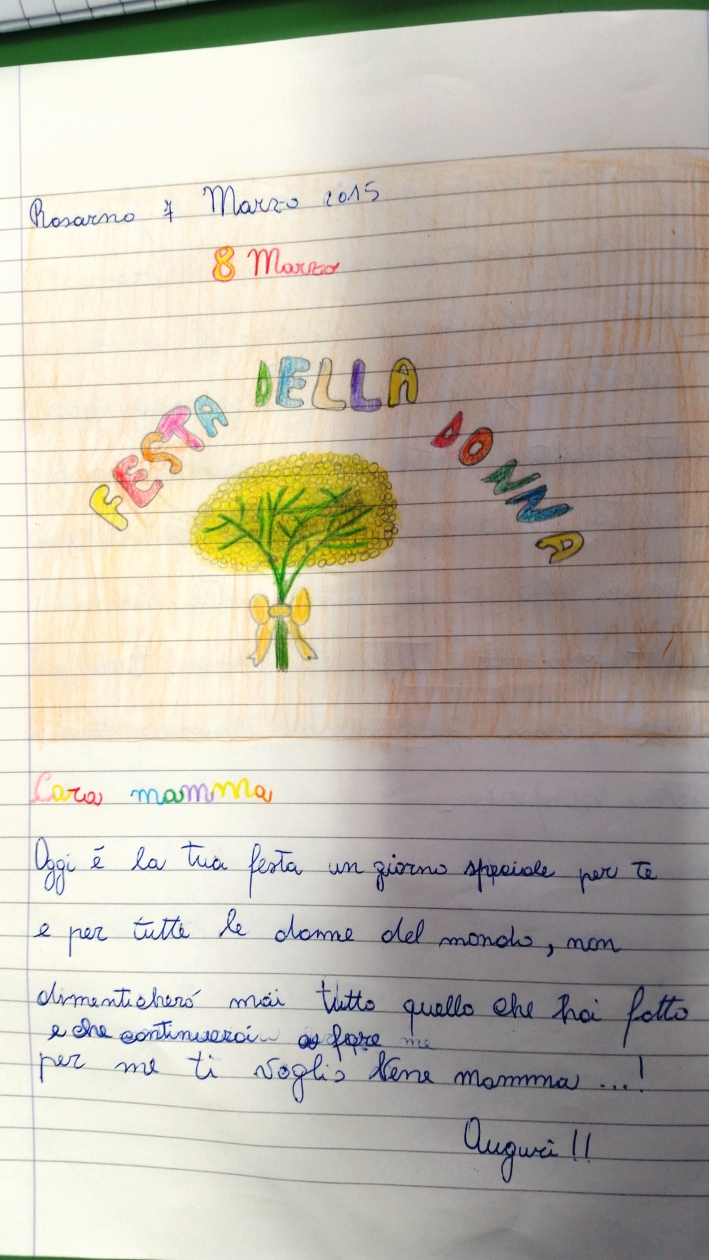 Rosarno 7 Marzo 2015
8 Marzo
FESTA DELLA DONNA
Cara mamma
Oggi é la tua festa un giorno speciale per te
e per tutte le donne del mondo, non
dimenticheró mai tutto quello che hai fatto
e che continuerai a fare
per me ti voglio bene mamma ...!
Auguri !!